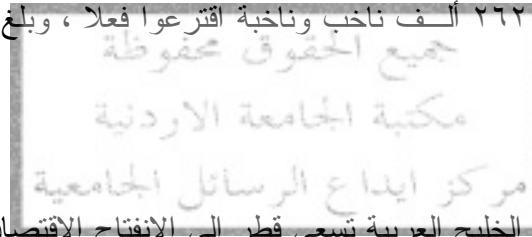 ٢٦٢ ألف ناخب وناخبة اقترعوا فعلا ، وبلغ
جميع الحقوق محفوظة
مكتبة الجامعة الاردنية
مركز ايداع الرسائل الجامعية
الخليج العربية تسعى قطر الى الانفتاح